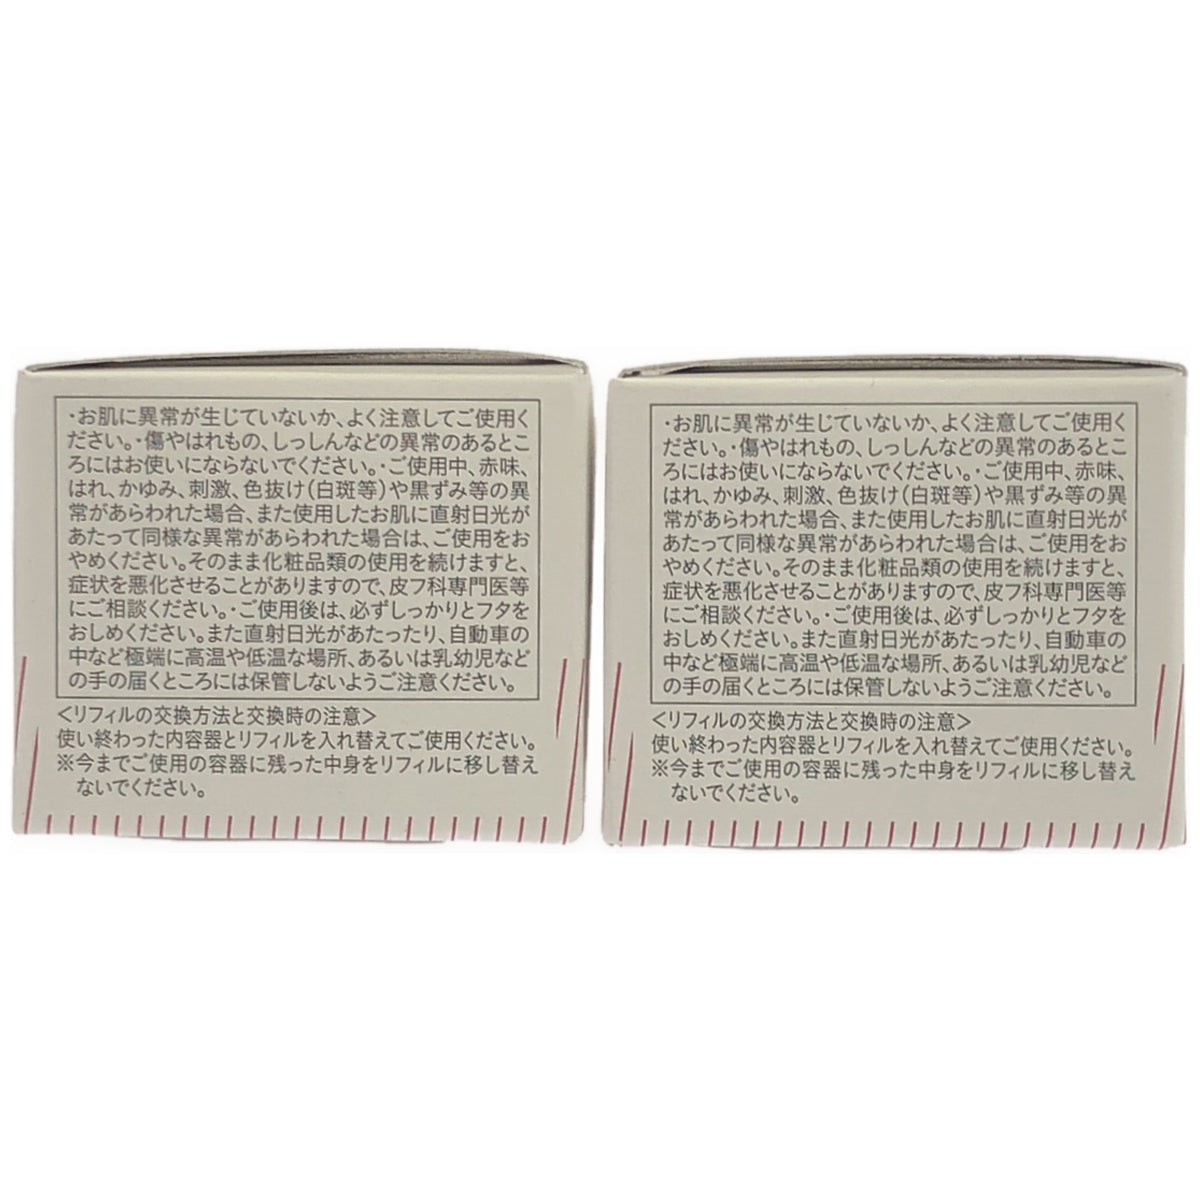 ・お肌に異常が生じていないか、よく注意してご使用く
ださい。・傷やはれもの、しっしんなどの異常のあるとこ
ろにはお使いにならないでください。・ご使用中、赤味、
はれ、かゆみ、刺激、色抜け(白斑等)や黒ずみ等の異
常があらわれた場合、また使用したお肌に直射日光が
あたって同様な異常があらわれた場合は、ご使用をお
やめください。そのまま化粧品類の使用を続けますと、
症状を悪化させることがありますので、皮フ科専門医等
にご相談ください。・ご使用後は、必ずしっかりとフタを
おしめください。また直射日光があたったり、自動車の
中など極端に高温や低温な場所、あるいは乳幼児など
の手の届くところには保管しないようご注意ください。
＜リフィルの交換方法と交換時の注意＞
使い終わった内容器とリフィルを入れ替えてご使用ください。
※今までご使用の容器に残った中身をリフィルに移し替え
ないでください。
・お肌に異常が生じていないか、よく注意してご使用く
ださい。・傷やはれもの、しっしんなどの異常のあるとこ
ろにはお使いにならないでください。・ご使用中、赤味、
はれ、かゆみ、刺激、色抜け(白斑等)や黒ずみ等の異
常があらわれた場合、また使用したお肌に直射日光が
あたって同様な異常があらわれた場合は、ご使用をお
やめください。そのまま化粧品類の使用を続けますと、
症状を悪化させることがありますので、皮フ科専門医等
にご相談ください。・ご使用後は、必ずしっかりとフタを
おしめください。また直射日光があたったり、自動車の
中など極端に高温や低温な場所、あるいは乳幼児など
の手の届くところには保管しないようご注意ください。
＜リフィルの交換方法と交換時の注意＞
使い終わった内容器とリフィルを入れ替えてご使用ください。
※今までご使用の容器に残った中身をリフィルに移し替え
ないでください。